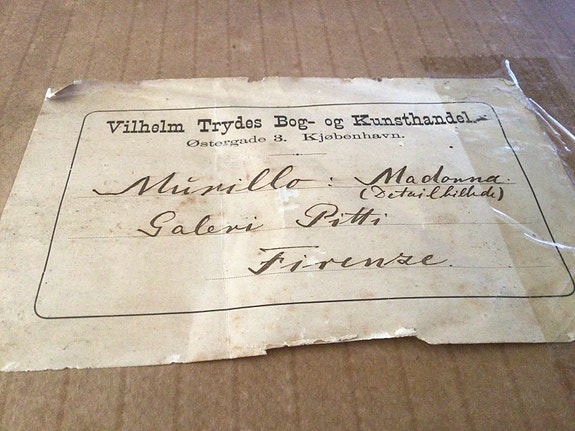 Vilhelm Trydes Bog- og Kunsthandel.
Østergade 3. Kjøbenhavn.
Murillo: Madonna.
(Detailbillede)
Galeri Pitti
Firenze.